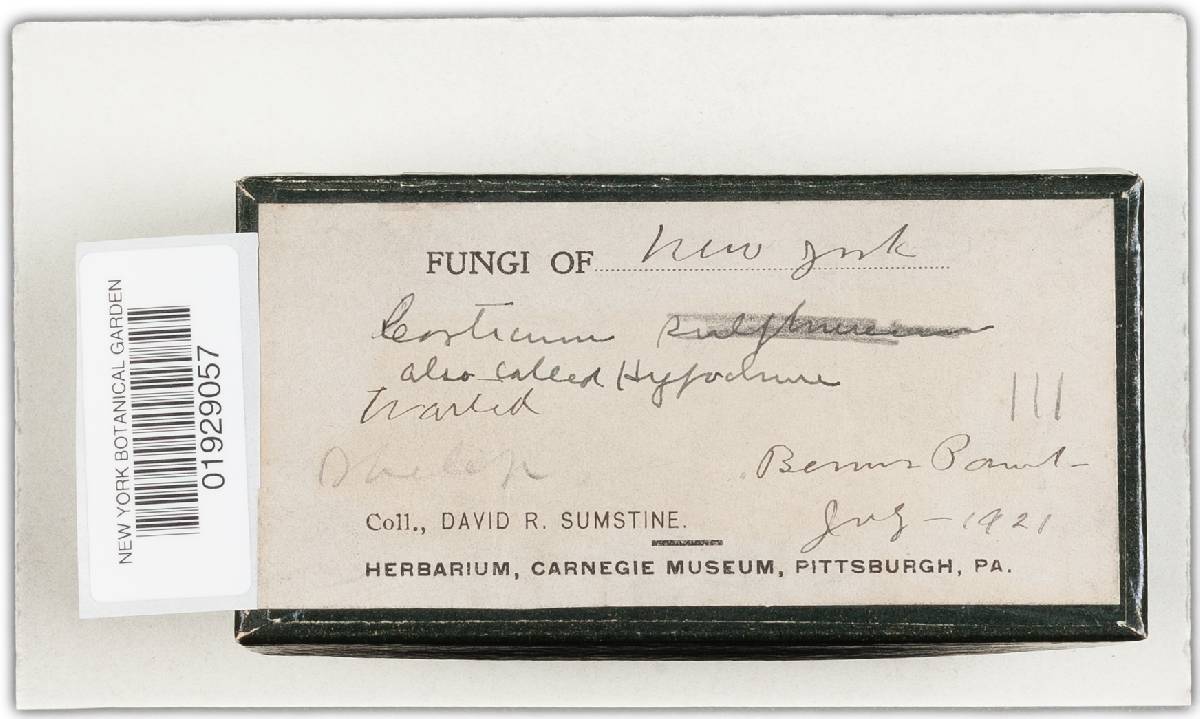 FUNGI OF New York
Corticum sulphureum
also called Hypochnus
III
Bemus Point
Coll., DAVID R. SUMSTINE.
July - 1921
HERBARIUM, CARNEGIE MUSEUM, PITTSBURGH, PA.
NEW YORK BOTANICAL GARDEN
01929057